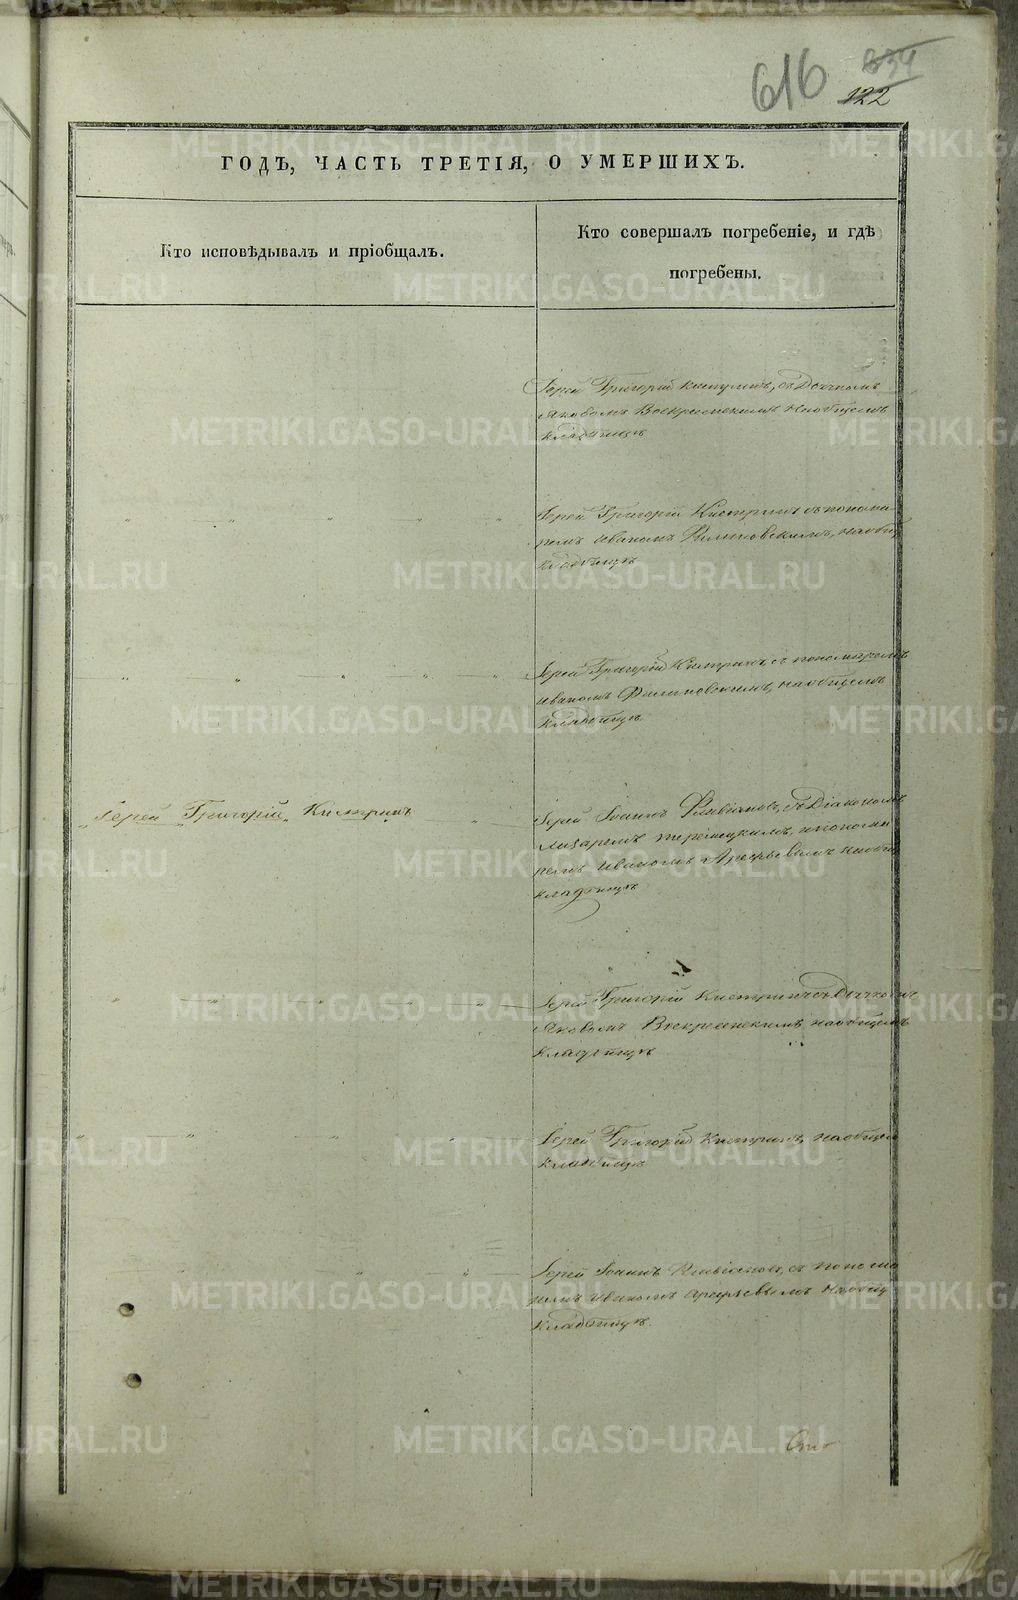 616
634
122
ГОДЪ, ЧАСТЬ ТРЕТІЯ, О УМЕРШИХЪ.
Кто исповѣдывалъ и пріобщалъ.
Кто совершалъ погребеніе, и гдѣ
погребены.
Іерей Григорій Кистринъ, съ Дьячкомъ
Яковомъ Воскресенскимъ на общемъ
кладбищѣ
Іерей Григорій Кистринъ съ понома
ремъ Иваномъ Филиновскимъ, на общ
кладбищѣ
Іерей Григорій Кистринъ съ пономаремъ
Иваномъ Филиновскимъ, на общемъ
кладбищѣ
Іерей Григорій Кистринъ
Іерей Іоаннъ Флавіановъ, съ Діакономъ
Лазаремъ и понома
ремъ Иваномъ Арефьевымъ на общ
кладбищѣ
Іерей Григорій Кистринъ съ Дьячкомъ
Яковомъ Воскресенскимъ на общемъ
кладбищѣ
Іерей Григорій Кистринъ, на общем
кладбищѣ
Іерей Іоаннъ Флавіановъ, съ понома
ремъ Иваномъ Арефьевымъ на общ
кладбищѣ.
METRIKI.GASO-URAL.RU